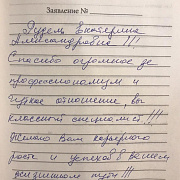 Заявление №
Екатерина
Александровна !!!
Спасибо огромное за
профессионализм и
чуткое отношение, вы
классный специалист !!!
Желаю Вам карьерного
роста и успехов в вашем
пути !!!